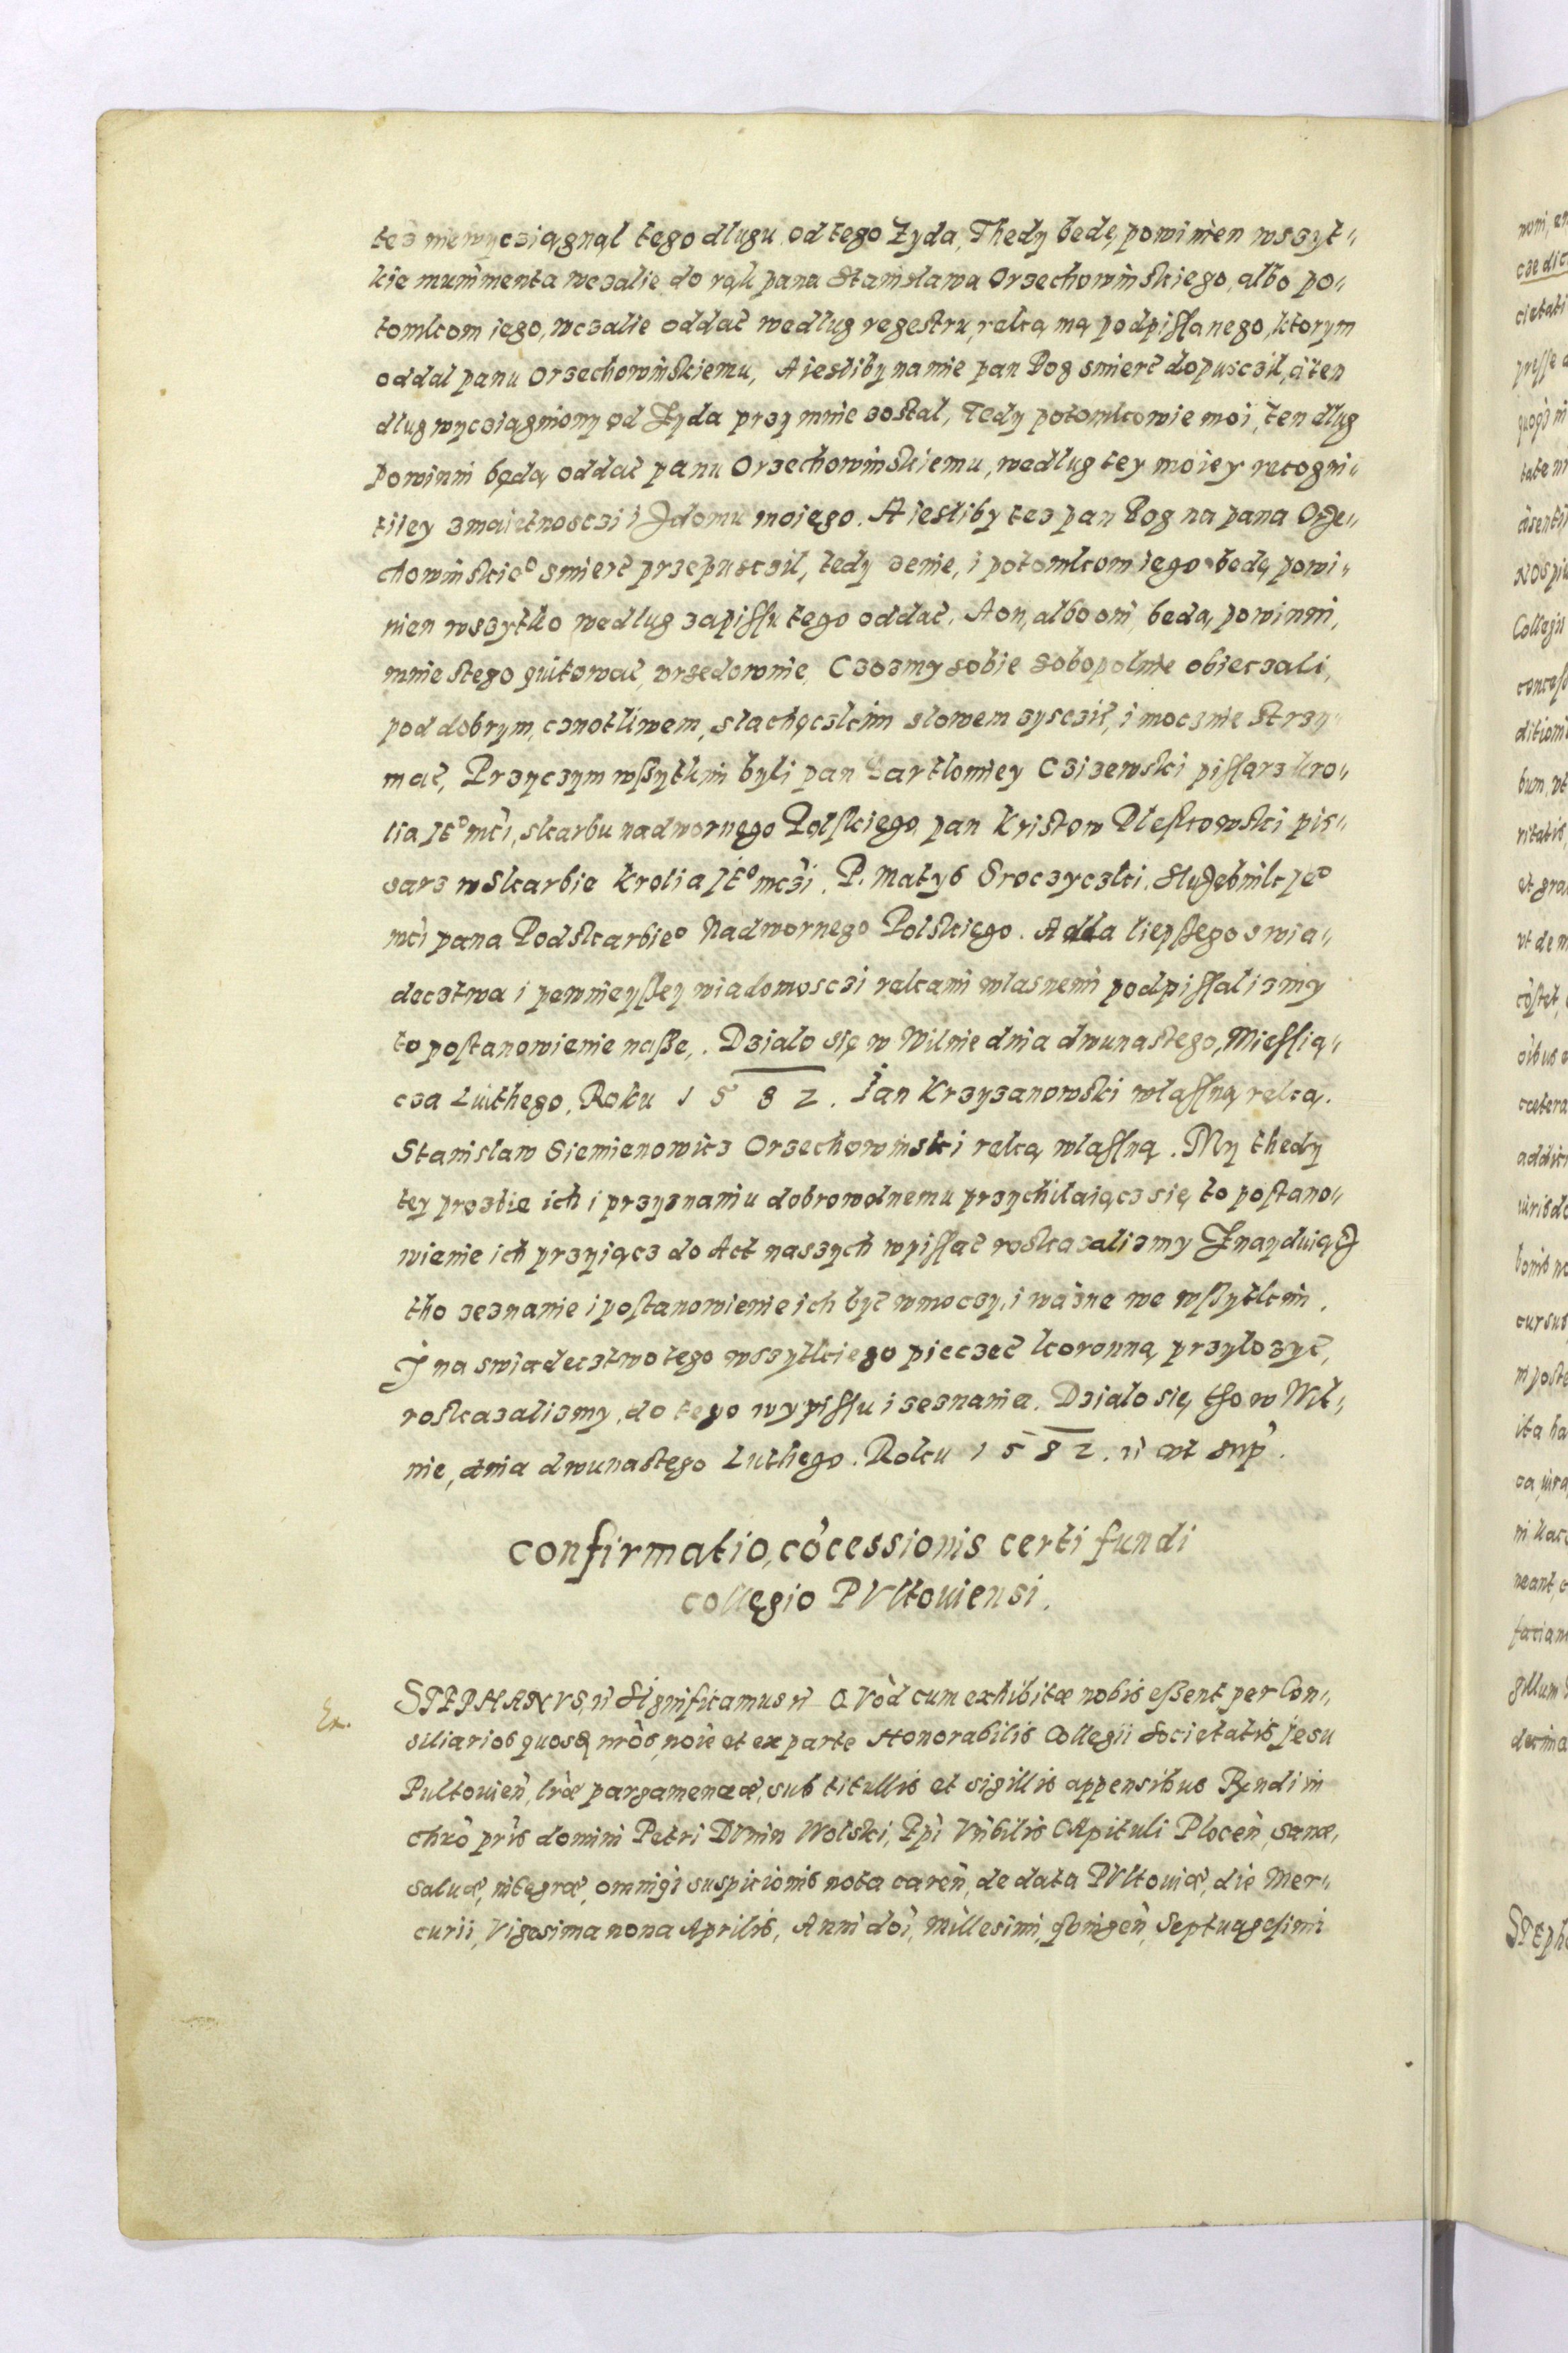 tez nie wycziągnąl tego dlugu od tego Zyda, Thedy bedę powinien wszyt-
kie munimenta wczalie do rąk pana Stanisława Orzechowinskiego, albo po-
tomkom iego, wczalie oddać wedlug regestru, reką mą podpissanego, ktorym
oddal panu Orzechowinskiemu, A iesliby na mie pan Bog smierć dopusczil, a ten
dlug wyczięgniony od Zyda przy mnie zostal, Tedy potomkowie moi, ten dlug
Powinni będą oddać panu Orzechowinskiemu, wedlug tey moiey recogni-
tiiey z maietnosczi i z domu moięgo. A iesliby tez pan Bog na pana Orze-
chowinskie° smierć przepusczil, tedy zenie, i potomkom iego bedę powi-
nien wszytko wedlug zapissu tego oddać. A on, albo oni będą powinni,
mnie stego quitować, vrzedownie, Czosmy sobie sobopolnie obieczali,
pod dobrym, cznotliwem, slachęczkim slowem zysczić, i mocznie strzy-
mać, Przyczym wßytkim byli pan Bartlomiey Czizewski pissarz kro-
lia Je° mći, skarbu nadwornęgo Polskiego pan Kristow Pleskowski pis-
sarz w Skarbie Krolia Je° mczi. P. Matys Sroczyczki, Służebnik Je°
mći pana Podskarbie° Nadwornego Polskięgo. A dla liepßego swia-
decztwa i pewnieyßey wiadomosczi rekami wlasnemi podpissalismy
to postanowienie naße,. Dzialo się w Wilnie dnia dwunastego, Miessią-
cza Luithego, Roku 1582. Jan Krzyzanowski własną reką.
Stanislaw Siemienowicz Orzechowinski reką wlassną. My thedy
tey prozbie ich i przyznaniu dobrowolnemu przychilaiącz się to postano-
wienie ich przyiącz do Act naszych wpissać roskazalismy I naydwiącz
tho zeznanie i postanowienie ich być w moczy, i wazne we wßytkim.
I na swiadecztwo tego wszytkiego pieczęć koronną przylozyć,
roskazalismy, do tego wypissu i zeznania. Dzialo się tho w Wil-
nie, dnia dwunastęgo Luthego. Roku 1582. ut sup.
Confirmatio, cõcessionis certi fundi
collęgio PVltouiensi.
Ex.
STEPHANVS, Significamus QVod cum exhibitæ nobis eßent per Con-
siliarios quosd nros, noie et ex parte Honorabilis Collegii Societatis Jesu
Pultouien, lræ pargamenææ, sub titullis et sigillis appensibus Rndi in
chro pris domini Petri DVnin Wolski, Epi Vnbilis CApituli Plocen, sanæ,
saluæ, integræ, omniq suspitionis nota caren, de data PVltouiæ, die Mer-
curii, Vigesima nona Aprilis, Anni doi, Millesimi, qbingen, Septuagesimi